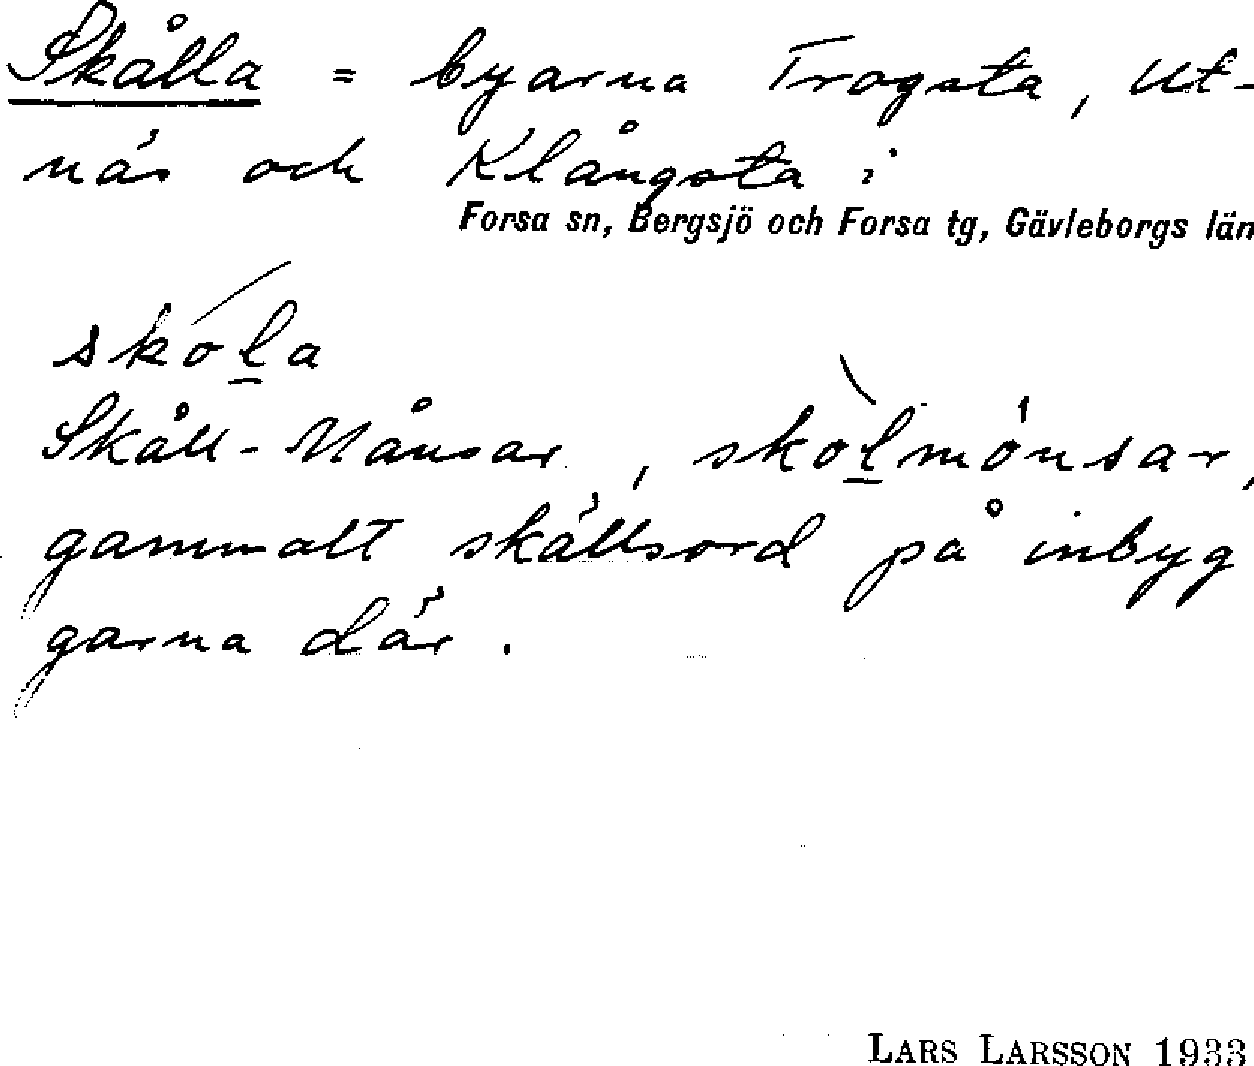 Skålla = byarna Trogsta, Ut-
näs och Klångsta i
Forsa sn, Bergsjö och Forsa tg, Gävleborgs län
skóḻa
Skåll-Månsar, skòḻmónsar,
gammalt skällsord på inbyg
garna där.
LARS LARSSON 1933